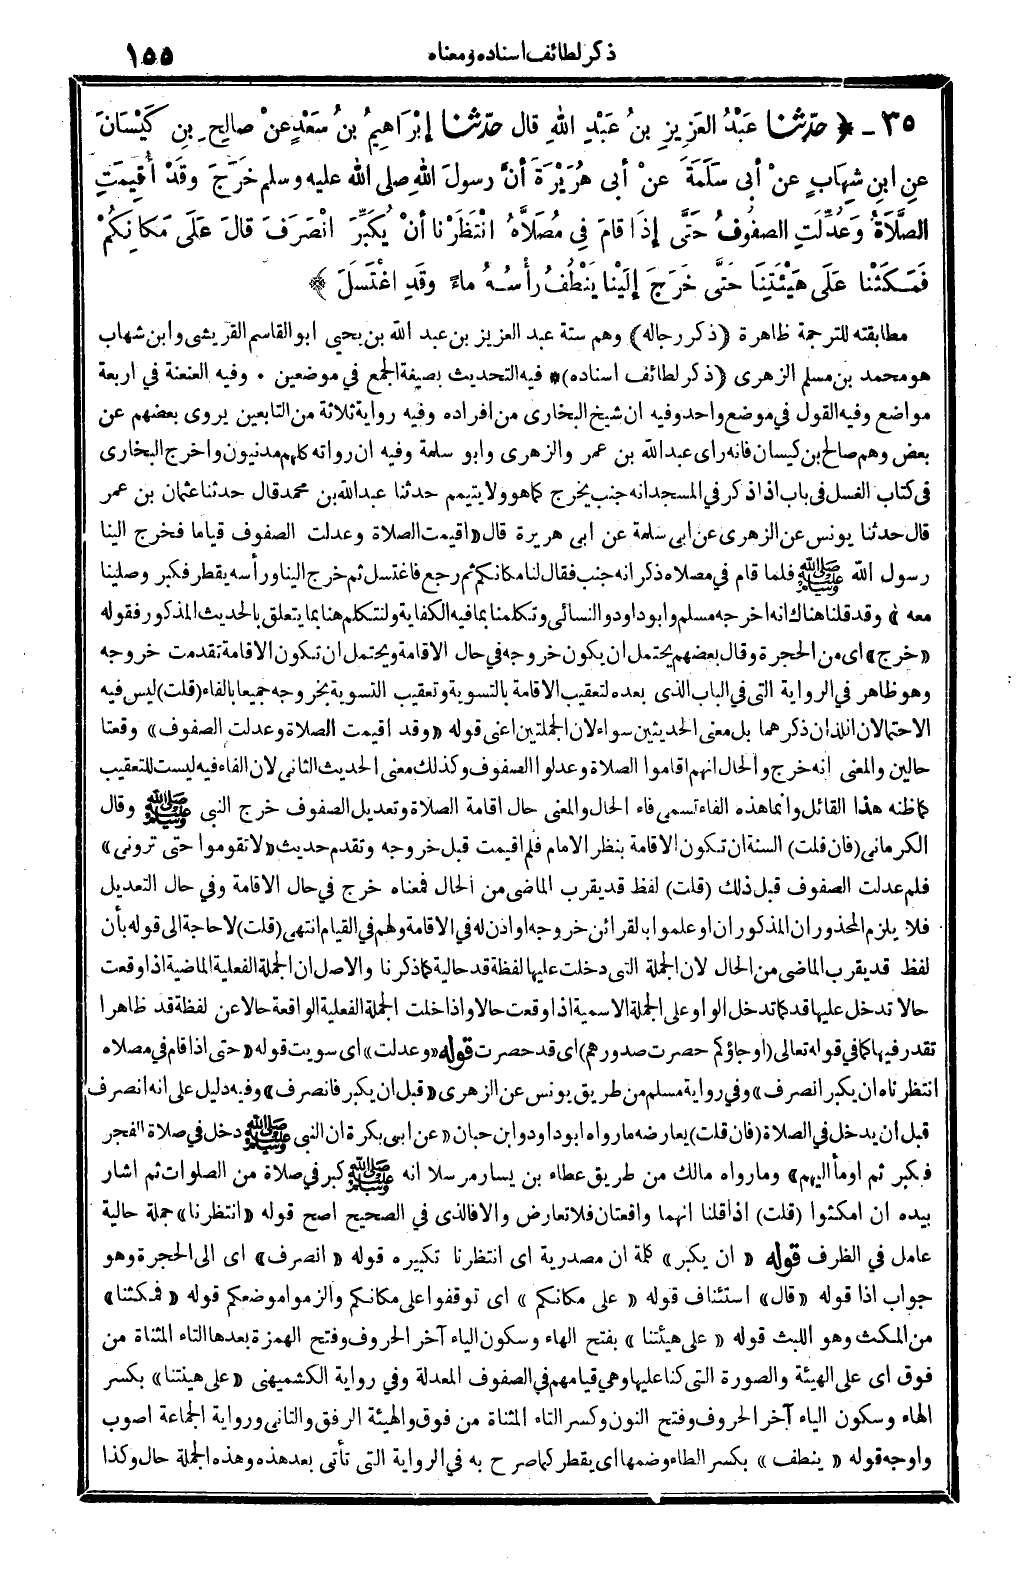 ذكر لطائف اسناده ومعناه ١٥٥
٣٥ - ﴿ حدّثنا عَبْدُ العَزِيزِ بنُ عَبْدِ اللهِ قال حدّثنا إبْرَاهِيمُ بنُ سَعْدٍ عنْ صالِحِ بنِ كَيْسانَ
عنِ ابنِ شِهابٍ عنْ أبى سَلَمَةَ عنْ أبى هُرَيْرَةَ أنَّ رسولَ اللهِ صلى الله عليه وسلم خَرَجَ وقَدْ أُقِيمَتِ
الصَّلَاةُ وَعُدِّلَتِ الصفُوفُ حَتَّى إذَا قامَ فِي مُصَلاَّهُ انْتَظَرْنا أنْ يُكَبِّرَ انْصَرَفَ قالَ عَلَى مَكانِكُمْ
فَمَكَثْنا عَلَى هَيْئَتِنَا حَتَّى خَرَجَ إلَيْنا يَنْطُفُ رأْسُهُ ماءً وقَدِ اغْتَسَلَ ﴾
مطابقته للترجمة ظاهرة (ذكر رجاله) وهم ستة عبد العزيز بن عبد الله بن يحيى ابو القاسم القريشى وابن شهاب
هو محمد بن مسلم الزهرى (ذكر لطائف اسناده)* فيه التحديث بصيغة الجمع في موضعين . وفيه العنعنة في اربعة
مواضع وفيه القول في موضع واحد وفيه ان شيخ البخارى من افراده وفيه رواية ثلاثة من التابعين يروى بعضهم عن
بعض وهم صالح بن كيسان فانه راى عبد الله بن عمر والزهرى وابو سلمة وفيه ان رواته كلهم مدنيون واخرج البخارى
فى كتاب الغسل فى باب اذا ذكر في المسجد انه جنب يخرج كما هو ولا يتيمم حدثنا عبد الله بن محمد قال حدثنا عثمان بن عمر
قال حدثنا يونس عن الزهرى عن ابى سلمة عن ابى هريرة قال «اقيمت الصلاة وعدلت الصفوف قياما فخرج الينا
رسول الله ﷺ فلما قام في مصلاه ذكر انه جنب فقال لنا مكانكم ثم رجع فاغتسل ثم خرج الينا ورأسه يقطر فكبر وصلينا
معه » وقد قلنا هناك انه اخرجه مسلم وابو داود والنسائى وتكلمنا بما فيه الكفاية ولنتكلم هنا بما يتعلق بالحديث المذكور فقوله
«خرج» اى من الحجرة وقال بعضهم يحتمل ان يكون خروجه في حال الاقامة ويحتمل ان تكون الاقامة تقدمت خروجه
وهو ظاهر في الرواية التى في الباب الذى بعده لتعقيب الاقامة بالتسوية وتعقيب التسوية بخروجه جميعا بالفاء (قلت) ليس فيه
الاحتمالان اللذان ذكرهما بل معنى الحديثين سواء لان الجملتين اعنى قوله «وقد اقيمت الصلاة وعدلت الصفوف» وقعتا
حالين والمعنى انه خرج والحال انهم اقاموا الصلاة وعدلوا الصفوف وكذلك معنى الحديث الثانى لان الفاء فيه ليست للتعقيب
كما ظنه هذا القائل وانما هذه الفاء تسمى فاء الحال والمعنى حال اقامة الصلاة وتعديل الصفوف خرج النبى ﷺ وقال
الكرمانى (فان قلت) السنة ان تكون الاقامة بنظر الامام فلم اقيمت قبل خروجه وتقدم حديث «لا تقوموا حتى ترونى»
فلم عدلت الصفوف قبل ذلك (قلت) لفظ قد يقرب الماضى من الحال فمعناه خرج في حال الاقامة وفي حال التعديل
فلا يلزم المحذوران المذكوران او علموا بالقرائن خروجه او اذن له في الاقامة ولهم في القيام انتهى (قلت) لا حاجة الى قوله بأن
لفظ قد يقرب الماضى من الحال لان الجملة التى دخلت عليها لفظة قد حالية كما ذكرنا والاصل ان الجملة الفعلية الماضية اذا وقعت
حالا تدخل عليها قد كما تدخل الواو على الجملة الاسمية اذا وقعت حالا واذا خلت الجملة الفعلية الواقعة حالا عن لفظة قد ظاهرا
تقدر فيها كما في قوله تعالى (او جاؤكم حصرت صدورهم) اى قد حصرت قوله «وعدلت» اى سويت قوله «حتى اذا قام في مصلاه
انتظرناه ان يكبر انصرف» وفي رواية مسلم من طريق يونس عن الزهرى «قبل ان يكبر فانصرف» وفيه دليل على انه انصرف
قبل أن يدخل في الصلاة (فان قلت) يعارضه ما رواه ابو داود وابن حبان «عن ابى بكرة ان النبى ﷺ دخل في صلاة الفجر
فكبر ثم اومأ اليهم» وما رواه مالك من طريق عطاء بن يسار مرسلا انه ﷺ كبر في صلاة من الصلوات ثم اشار
بيده ان امكثوا (قلت) اذا قلنا انهما واقعتان فلا تعارض والا فالذى في الصحيح اصح قوله «انتظرنا» جملة حالية
عامل في الظرف قوله « ان يكبر» كلمة ان مصدرية اى انتظرنا تكبيره قوله « انصرف» اى الى الحجرة وهو
جواب اذا قوله «قال» استئناف قوله « على مكانكم » اى توقفوا على مكانكم والزموا موضعكم قوله « فمكثنا»
من المكث وهو اللبث قوله « على هيئتنا » بفتح الهاء وسكون الياء آخر الحروف وفتح الهمزة بعدها التاء المثناة من
فوق اى على الهيئة والصورة التى كنا عليها وهي قيامهم في الصفوف المعدلة وفي رواية الكشميهنى «على هينتنا» بكسر
الهاء وسكون الياء آخر الحروف وفتح النون وكسر التاء المثناة من فوق والهيئة الرفق والتانى ورواية الجماعة اصوب
واوجه قوله « ينطف » بكسر الطاء وضمها اى يقطر كما صرح به في الرواية التى تأتى بعد هذه وهذه الجملة حال وكذا